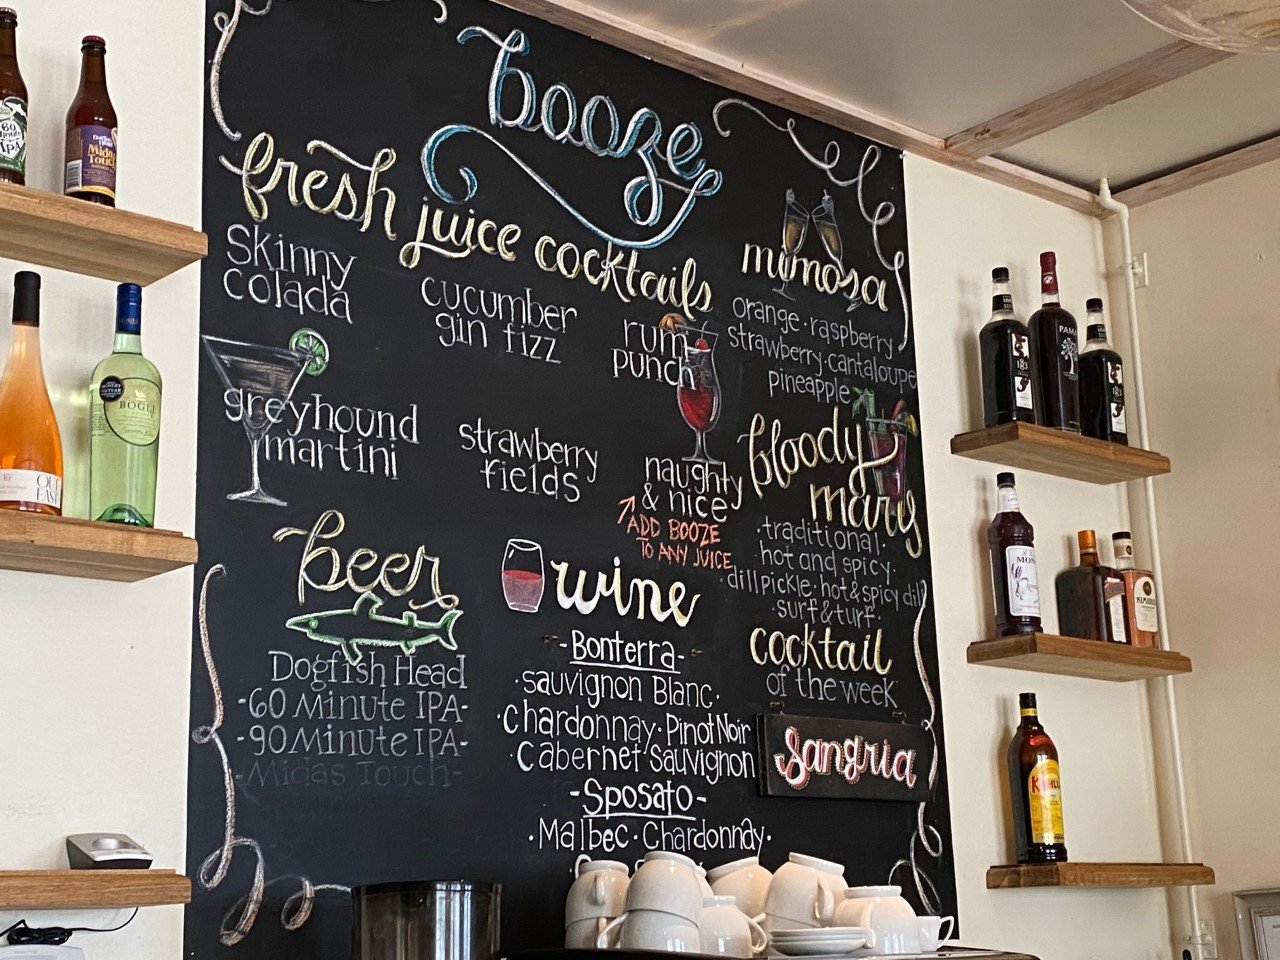 booze
fresh juice cocktails
skinny
colada
cucumber
gin fizz
rum
punch
greyhound
martini
strawberry
fields
naughty
& nice
ADD BOOZE
TO ANY JUICE
mimosa
orange · raspberry
strawberry · cantaloupe
pineapple
bloody
mary
· traditional ·
hot and spicy ·
dill pickle · hot & spicy dill
· surf & turf ·
cocktail
of the week
sangria
beer
Dogfish Head
-60 Minute IPA-
-90 Minute IPA-
-Midas Touch-
wine
-Bonterra-
· sauvignon Blanc ·
· Chardonnay · Pinot Noir
· Cabernet Sauvignon
-Sposato-
· Malbec · Chardonnay ·
60
IPA
Midas
Touch
BOGLE
PAMA